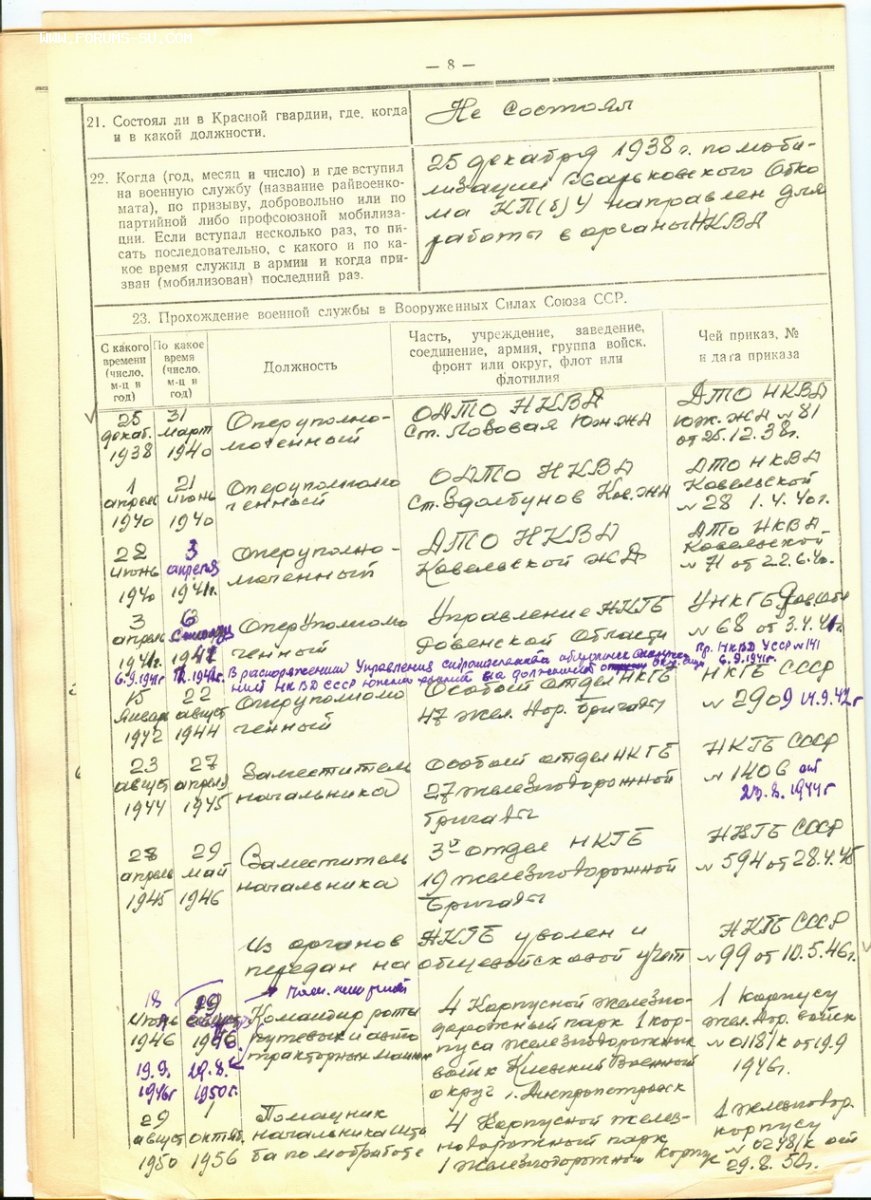 WWW.FORUMS-SU.COM
— 8 —
21. Состоял ли в Красной гвардии, где, когда
и в какой должности.
Не состоял
22. Когда (год, месяц и число) и где вступил
на военную службу (название райвоенко-
мата), по призыву, добровольно или по
партийной либо профсоюзной мобилиза-
ции. Если вступал несколько раз, то пи-
сать последовательно, с какого и по ка-
кое время служил в армии и когда при-
зван (мобилизован) последний раз.
25 декабря 1938 г. по моби-
лизации Харьковского Обко-
ма КП(б)У направлен для
работы в органы НКВД
23. Прохождение военной службы в Вооруженных Силах Союза ССР.
С какого
времени
(число,
м-ц и
год)
По какое
время
(число,
м-ц и
год)
Должность
Часть, учреждение, заведение,
соединение, армия, группа войск,
фронт или округ, флот или
флотилия
Чей приказ, №
и дата приказа
25
декаб.
1938
31
март
1940
Оперуполно-
моченный
ОДТО НКВД
Ст. Лозовая Юж ЖД
ДТО НКВД
Юж. ЖД № 81
от 25.12.38г.
1
апрель
1940
21
июнь
1940
Оперуполномо
ченный
ОДТО НКВД
ст. Здолбунов Ков. ЖД
ДТО НКВД
Ковельской
№ 28 1.4.40г.
22
июнь
1940
3
апреля
1941г.
Оперуполно-
моченный
ДТО НКВД
Ковельской ЖД
ДТО НКВД
Ковельской
№ 71 от 22.6.40.
3
апрель
1941г.
6
1941
Оперуполномо
ченный
Управление НКГБ
Ровенской области
УНКГБ
№ 68 от 3.4.41г.
6.9.1941г
В распоряжении Управления
Пр. НКВД УССР №141
6.9.1941г.
НКВД СССР
15
январь
1942
22
август
1944
Оперуполномо
ченный
Особый отдел НКГБ
47 жел. дор. бригады
НКГБ СССР
№ 2909 14.9.42г
23
август
1944
27
апреля
1945
Заместитель
начальника
Особый отдел НКГБ
27 железнодорожной
бригады
НКГБ СССР
№ 1406 от
23.8.1944г
28
апрель
1945
29
май
1946
Заместитель
начальника
3й отдел НКГБ
19 железнодорожной
бригады
НКГБ СССР
№ 594 от 28.4.45
Из органов НКГБ уволен и
передан на общевойсковой учет
НКГБ СССР
№ 99 от 10.5.46г.
18
июнь
1946
19.9.
1946г
29
август
1946
29.8.
1950г.
Командир роты
путевых и авто
тракторных машин
4 Корпусной железно-
дорожный парк 1 кор-
пуса железнодорожных
войск Киевский Военный
округ г. Днепропетровск
1 корпусу
жел. дор. войск
№ 0118/к от 19.9
1946г.
29
август
1950
1
октяб.
1956
Помощник
начальника шта
ба по моб работе
4 Корпусной желез-
нодорожный парк
1 железнодорожный корпус
1 железнодор.
корпусу
№ 0248/к от
29.8.50г.